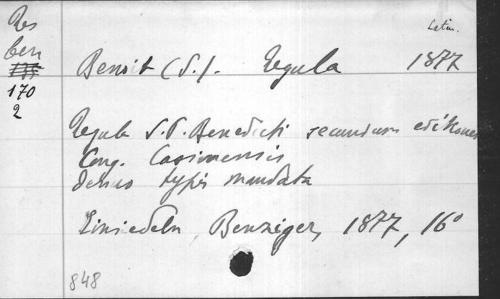 Res
ben
170
2
Latin.
Benoit (S.). Regula 1877
Regula S.P. Benedicti secundum editionem
Cong. Casinensis
denuo typis mandata
Einsiedeln, Benziger, 1877, 16°
848